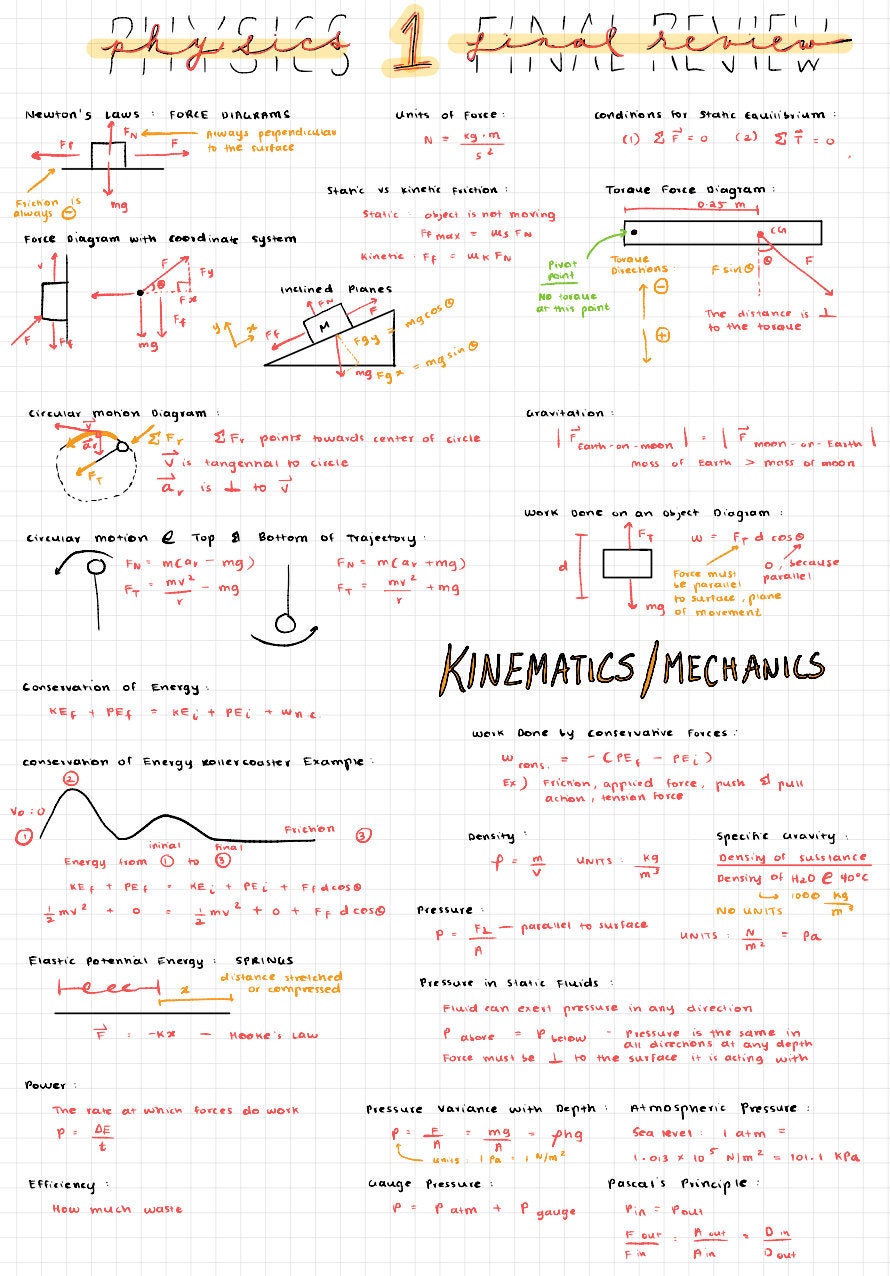 physics 1 final review
PHYSICS FINAL REVIEW
Newton's Laws : FORCE DIAGRAMS
FN
Always perpendicular
to the surface
Ff
F
Friction is
always ⊖
mg
Units of Force :
N = kg · m / s²
Conditions for Static Equilibrium :
(1) Σ F⃗ = 0 (2) Σ T⃗ = 0
Static vs Kinetic Friction :
Static : object is not moving
Ff max = Ms FN
Kinetic : Ff = MK FN
Torque Force Diagram :
0.25 m
CG
Pivot
point
No torque
at this point
Torque
Directions :
⊖
⊕
F sin θ
θ
F
The distance is ⊥
to the torque
Force Diagram with coordinate system
v
F
Ff
F
θ
Fy
Fx
Ff
mg
Inclined Planes
FN
F
M
Ff
y
x
Fgy = mg cos θ
mg
Fgx = mg sin θ
Circular motion Diagram :
v⃗
a⃗r
FT
Σ Fr
Σ Fr points towards center of circle
v⃗ is tangennal to circle
a⃗r is ⊥ to v⃗
Gravitation :
| F⃗ Earth-on-moon | = | F⃗ moon-on-Earth |
mass of Earth > mass of moon
Circular motion @ Top & Bottom of Trajectory :
FN = m(ar - mg)
FT = mv² / r - mg
FN = m(ar + mg)
FT = mv² / r + mg
Work Done on an Object Diagram :
FT
d
mg
w = FT d cos θ
Force must
be parallel
to surface, plane
of movement
0, because
parallel
KINEMATICS/MECHANICS
Conservation of Energy :
KEf + PEf = KEi + PEi + Wn.c.
Work Done by Conservative Forces :
W cons. = -(PEf - PEi)
Ex) Friction, applied force, push & pull
action, tension force
Conservation of Energy Rollercoaster Example :
②
Vo : 0
①
Friction
③
initial final
Energy from ① to ③
KEf + PEf = KEi + PEi + Ff d cos θ
1/2 mv² + 0 = 1/2 mv² + 0 + Ff d cos θ
Density :
ρ = m / v UNITS : kg / m³
Specific Gravity :
Density of substance
Density of H2O @ 40°C
1000 kg / m³
NO UNITS
Pressure :
P = F⊥ / A — parallel to surface
UNITS : N / m² = Pa
Elastic Potennal Energy : SPRINGS
x
distance stretched
or compressed
F⃗ : -Kx — Hooke's Law
Pressure in Static Fluids :
Fluid can exert pressure in any direction
P above = P below - Pressure is the same in
all directions at any depth
Force must be ⊥ to the surface it is acting with
Power :
The rate at which forces do work
P = ΔE / t
Pressure Variance with Depth :
P = F / A = mg / A = ρhg
units : 1 Pa = 1 N/m²
Atmospheric Pressure :
Sea level : 1 atm =
1.013 × 10⁵ N/m² = 101.1 KPa
Efficiency :
How much waste
Gauge Pressure :
P = P atm + P gauge
Pascal's Principle :
Pin = Pout
F out / F in = A out / A in = D in / D out